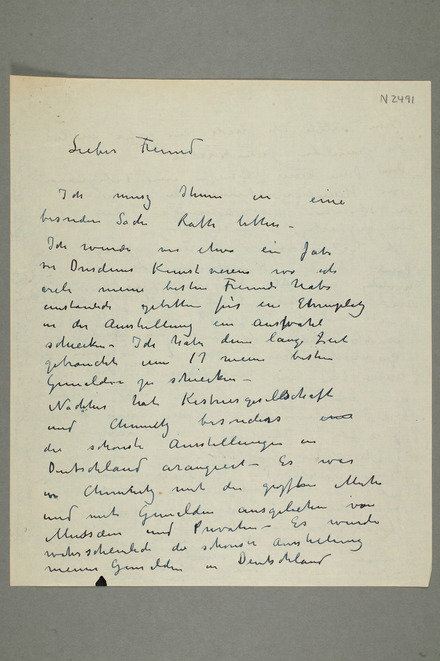 N2491
Lieber Freund
Ich muss Ihnen in eine
besonder Sache Rath bitten –
Ich wurde vor etwa ein Jahr
von Dresdens Kunstverein wo ich
viele meine besten Freunde habe
gebeten für ein Ehrenplatz
in der Ausstellung ein Auswahl
schicken – Ich habe lang Zeit
gebraucht um 17 meine besten
Gemälder zu schicken –
hat Kestnergesellschaft
und Chemnitz besonders
die schönste Ausstellungen in
Deutschland arangiert – Es war
in Chemnitz mit die
und mit Gemälden ausgeliehen von
Museen und Privaten – Es wurde
wahrscheinlich die schönste Ausstellung
meine Gemälden in Deutschland